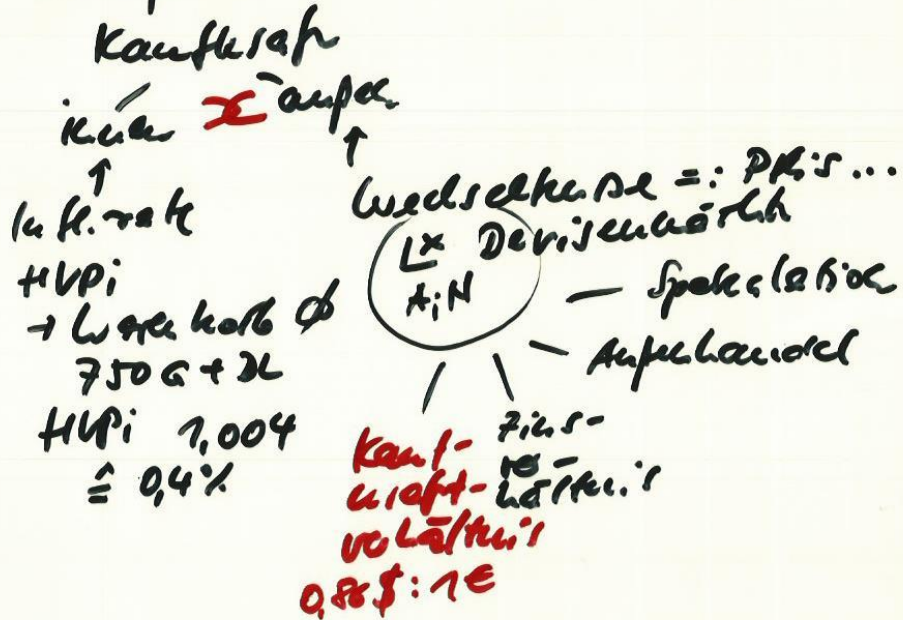 Kaufkraft
innen x außen
↑ ↑
Infl.rate
HVPi
→ Warenkorb Ø
750 G + DL
HVPi 1,004
≙ 0,4%
Wechselkurse =: PReis...
Devisenmärkte
A;N
— Spekulation
— Außenhandel
Zins-
ve-
hältnis
Kauf-
kraft-
verhältnis
0,86 $ : 1 €